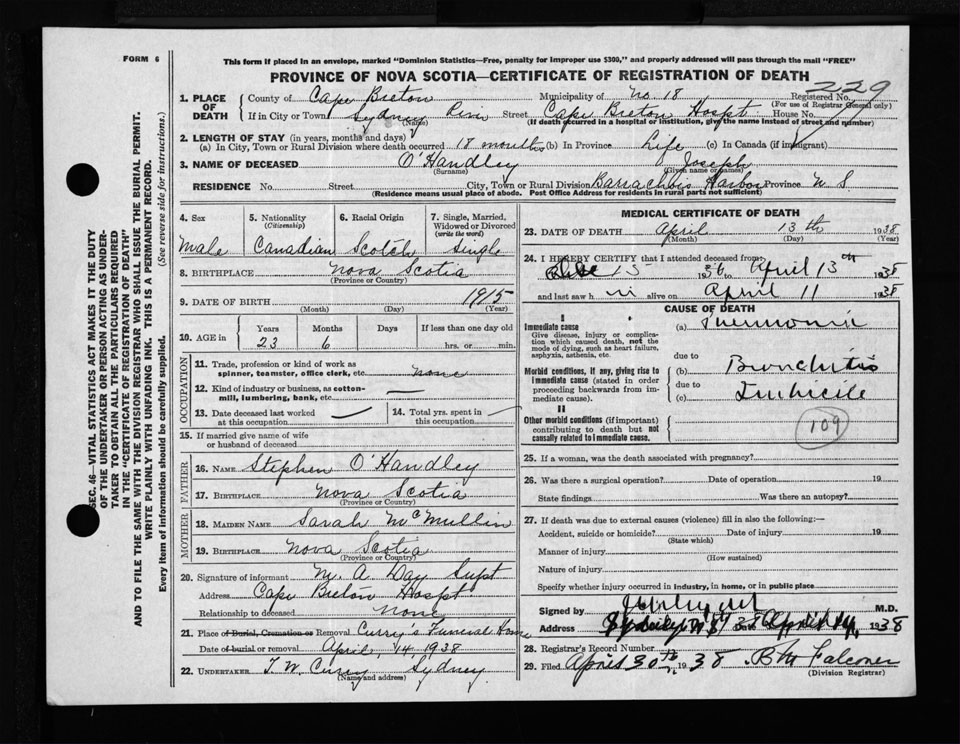 FORM 6
This form if placed in an envelope, marked "Dominion Statistics—Free, penalty for improper use $300," and properly addressed will pass through the mail "FREE"
PROVINCE OF NOVA SCOTIA—CERTIFICATE OF REGISTRATION OF DEATH
229
SEC. 46—VITAL STATISTICS ACT MAKES IT THE DUTY
OF THE UNDERTAKER OR PERSON ACTING AS UNDER-
TAKER TO OBTAIN ALL THE PARTICULARS REQUIRED
IN THE "CERTIFICATE OF REGISTRATION OF DEATH"
AND TO FILE THE SAME WITH THE DIVISION REGISTRAR WHO SHALL ISSUE THE BURIAL PERMIT.
WRITE PLAINLY WITH UNFADING INK. THIS IS A PERMANENT RECORD.
Every item of information should be carefully supplied. (See reverse side for instructions.)
1. PLACE OF DEATH County of Cape Breton Municipality of No 18 Registered No.
(For use of Registrar General only)
If in City or Town Sydney River Street Cape Breton Hospt House No.
(Name) (If death occurred in a hospital or institution, give the name instead of street and number)
2. LENGTH OF STAY (in years, months and days)
(a) In City, Town or Rural Division where death occurred 18 months (b) In Province Life (c) In Canada (if immigrant)
3. NAME OF DECEASED O'Handley Joseph
(Surname) (Given name or names)
RESIDENCE No. Street City, Town or Rural Division Barrachois Harbor Province N S.
(Residence means usual place of abode. Post Office Address for residents in rural parts not sufficient)
4. Sex 5. Nationality 6. Racial Origin 7. Single, Married,
(Citizenship) Widowed or Divorced
(write the word)
Male Canadian Scotch Single
8. BIRTHPLACE Nova Scotia
(Province or Country)
9. DATE OF BIRTH 1915
(Month) (Day) (Year)
10. AGE in Years Months Days If less than one day old
23 6 hrs. or min.
OCCUPATION
11. Trade, profession or kind of work as
spinner, teamster, office clerk, etc. none
12. Kind of industry or business, as cotton-
mill, lumbering, bank, etc. —
13. Date deceased last worked 14. Total yrs. spent in
at this occupation — this occupation —
15. If married give name of wife
or husband of deceased
FATHER
16. NAME Stephen O'Handley
17. BIRTHPLACE Nova Scotia
(Province or Country)
MOTHER
18. MAIDEN NAME Sarah McMullin
19. BIRTHPLACE Nova Scotia
(Province or Country)
20. Signature of informant M. A Day Supt
Address Cape Breton Hospt
Relationship to deceased none
21. Place of Burial, Cremation or Removal Curry's Funeral Home
Date of burial or removal April, 14, 1938
22. UNDERTAKER T. W. Curry Sydney
(Name and address)
MEDICAL CERTIFICATE OF DEATH
23. DATE OF DEATH April 13th 1938
(Month) (Day) (Year)
24. I HEREBY CERTIFY that I attended deceased from:
15 1936 to April 13th 1938
and last saw h im alive on April 11 1938
CAUSE OF DEATH
I
Immediate cause
Give disease, injury or complica-
tion which caused death, not the
mode of dying, such as heart failure,
asphyxia, asthenia, etc.
(a) Pneumonia
due to
Morbid conditions, if any, giving rise to
immediate cause (stated in order
proceeding backwards from im-
mediate cause).
(b) Bronchitis
due to
(c) Imbicile
II
Other morbid conditions (if important)
contributing to death but not
causally related to immediate cause.
109
25. If a woman, was the death associated with pregnancy?
26. Was there a surgical operation? Date of operation 19
State findings Was there an autopsy?
27. If death was due to external causes (violence) fill in also the following:—
Accident, suicide or homicide? Date of injury 19
(State which)
Manner of injury
(How sustained)
Nature of injury
Specify whether injury occurred in industry, in home, or in public place
Signed by M.D.
Address Date April 14, 1938
28. Registrar's Record Number
29. Filed April 30th 1938 B M Falconer
(Division Registrar)